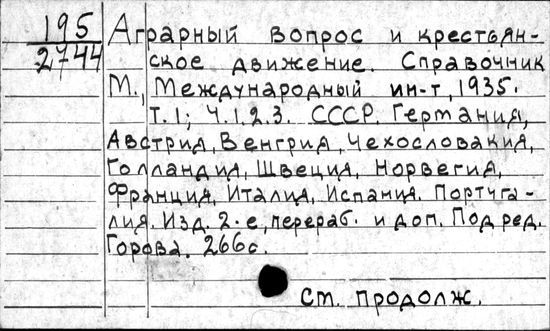 195
2744
Аграрный вопрос и крестьян-
ское движение. Справочник
М., Международный ин-т, 1935.
Т.1; Ч.1.2.3. СССР. Германия,
Австрия, Венгрия, Чехословакия,
Голландия, Швеция, Норвегия,
Франция, Италия, Испания. Португа-
лия. Изд. 2-е, перераб. и доп. Под ред.
Горова. 266с.
См. продолж.